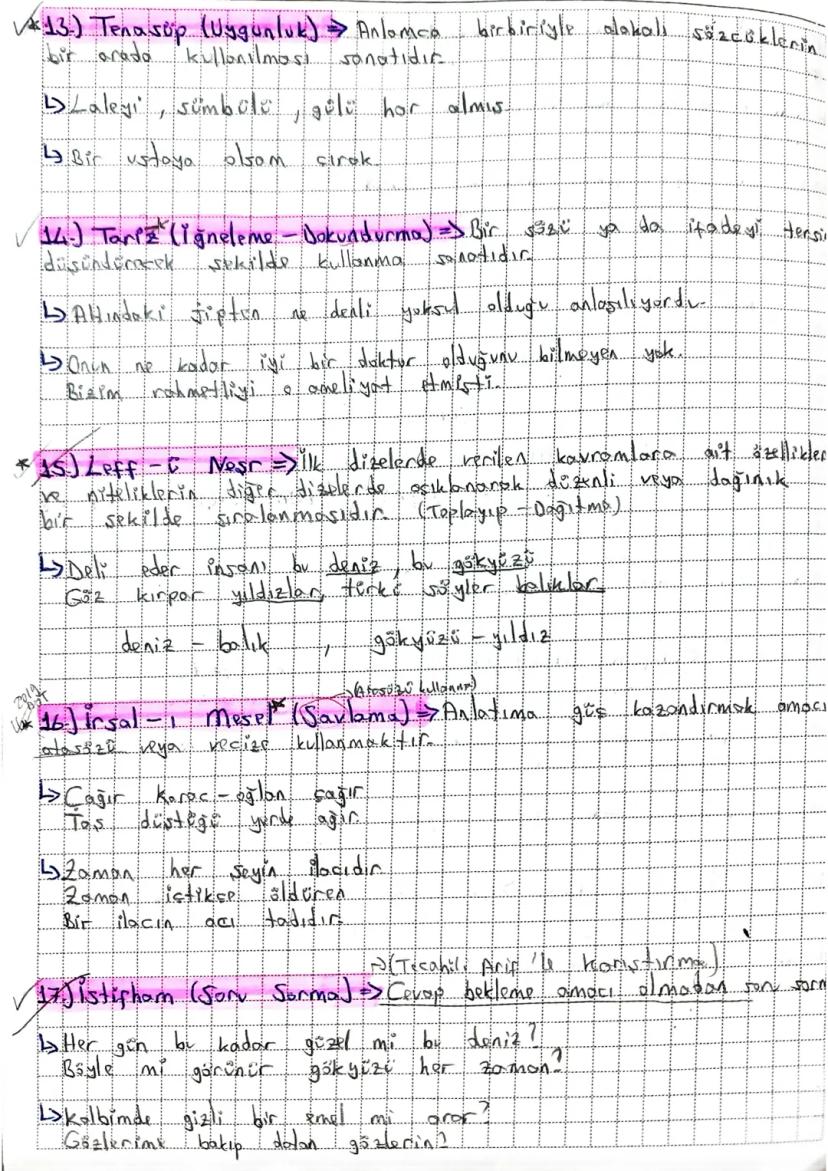 13.) Tenasüp (Uygunluk) => Anlamca birbiriyle alakalı sözcüklerin
bir arada kullanılması sanatıdır.
↳ Laleyi, sümbülü, gülü har almış
↳ Bir ustaya olsam çırak
14.) Tariz* (İğneleme - Dokundurma) => Bir sözü ya da ifadeyi tersi
düşündürecek şekilde kullanma sanatıdır.
↳ Altındaki jipten ne denli yoksul olduğu anlaşılıyordu.
↳ Onun ne kadar iyi bir doktor olduğunu bilmeyen yok.
Bizim rahmetliyi o ameliyat etmişti.
* 15.) Leff - ü Neşr => İlk dizelerde verilen kavramlara ait özellikler
ve niteliklerin diğer dizelerde açıklanarak düzenli veya dağınık
bir şekilde sıralanmasıdır. (Toplayıp - Dağıtma)
↳ Deli eder insanı bu deniz, bu gökyüzü
Göz kırpar yıldızlar, türkü söyler balıklar
deniz - balık , gökyüzü - yıldız
→(Atasözü kullanımı)
16.) İrsal - ı Mesel* (Savlama) => Anlatıma güç kazandırmak amacı
atasözü veya vecize kullanmaktır.
↳ Çağır Karac - oğlan çağır
Taş düştüğü yerde ağır
↳ Zaman her şeyin ilacıdır
Zaman içtikçe öldüren
Bir ilacın acı tadıdır
→(Tecahili Arif 'le karıştırma)
17.) İstifham (Soru Sorma) => Cevap bekleme amacı olmadan soru sorm
↳ Her gün bu kadar güzel mi bu deniz?
Böyle mi görünür gökyüzü her zaman?
↳ Kalbimde gizli bir emel mi arar?
Gözlerime bakıp dalan gözlerin?